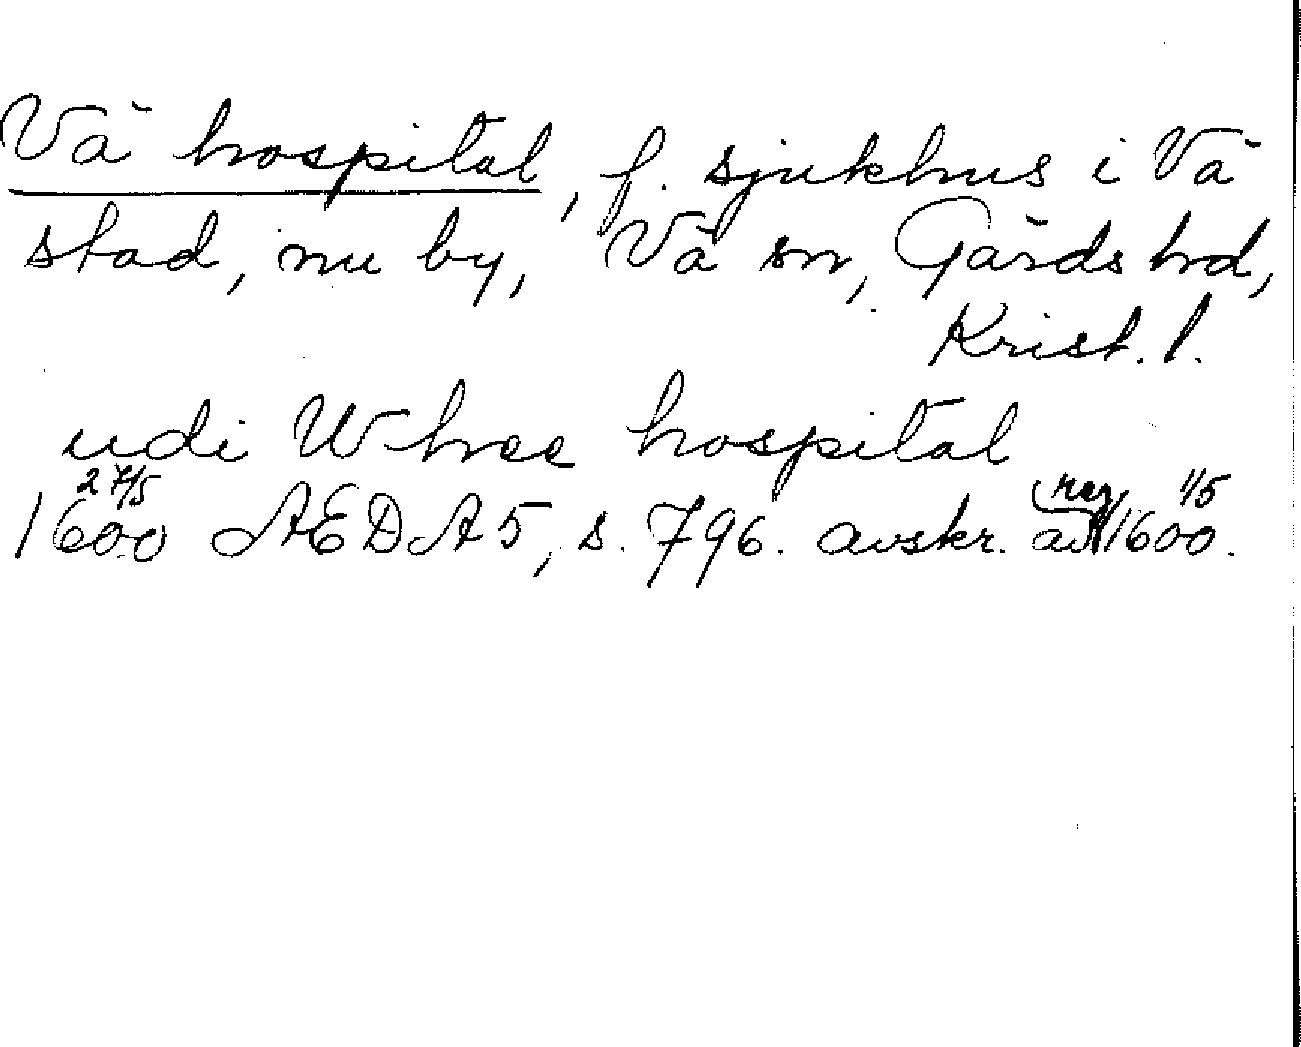 Vä hospital, f. sjukhus i Vä
stad, nu by, Vä sn, Gärds hd,
Krist. l.
udi Whæe hospital
27/5 1600 AEDA 5, s. 796. avskr. av reg 1/5 1600.